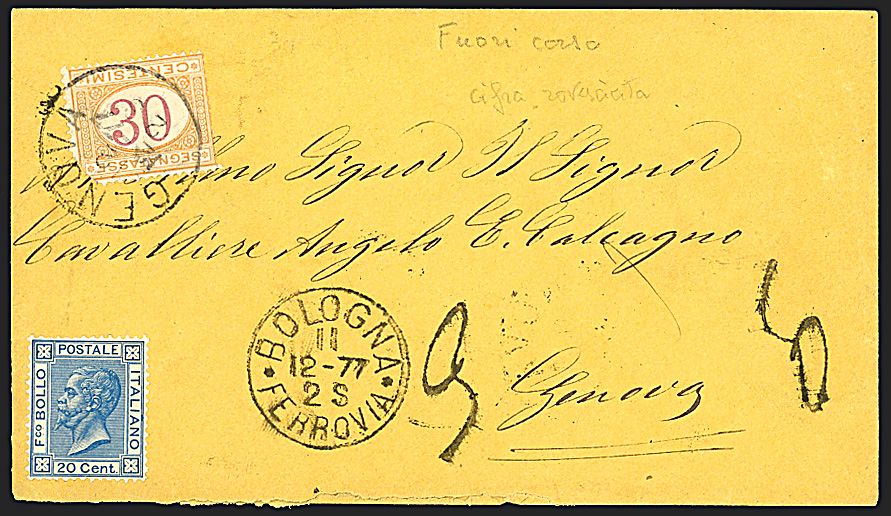 Fuori corso
cifra rovesciata
CENTESIMI
30
SEGNATASSE
GENOVA
Signor Il Signor
Cavalliere Angelo E. Calcagno
BOLOGNA
11
12-77
2 S
FERROVIA
Genova
POSTALE
Fco BOLLO
ITALIANO
20 Cent.